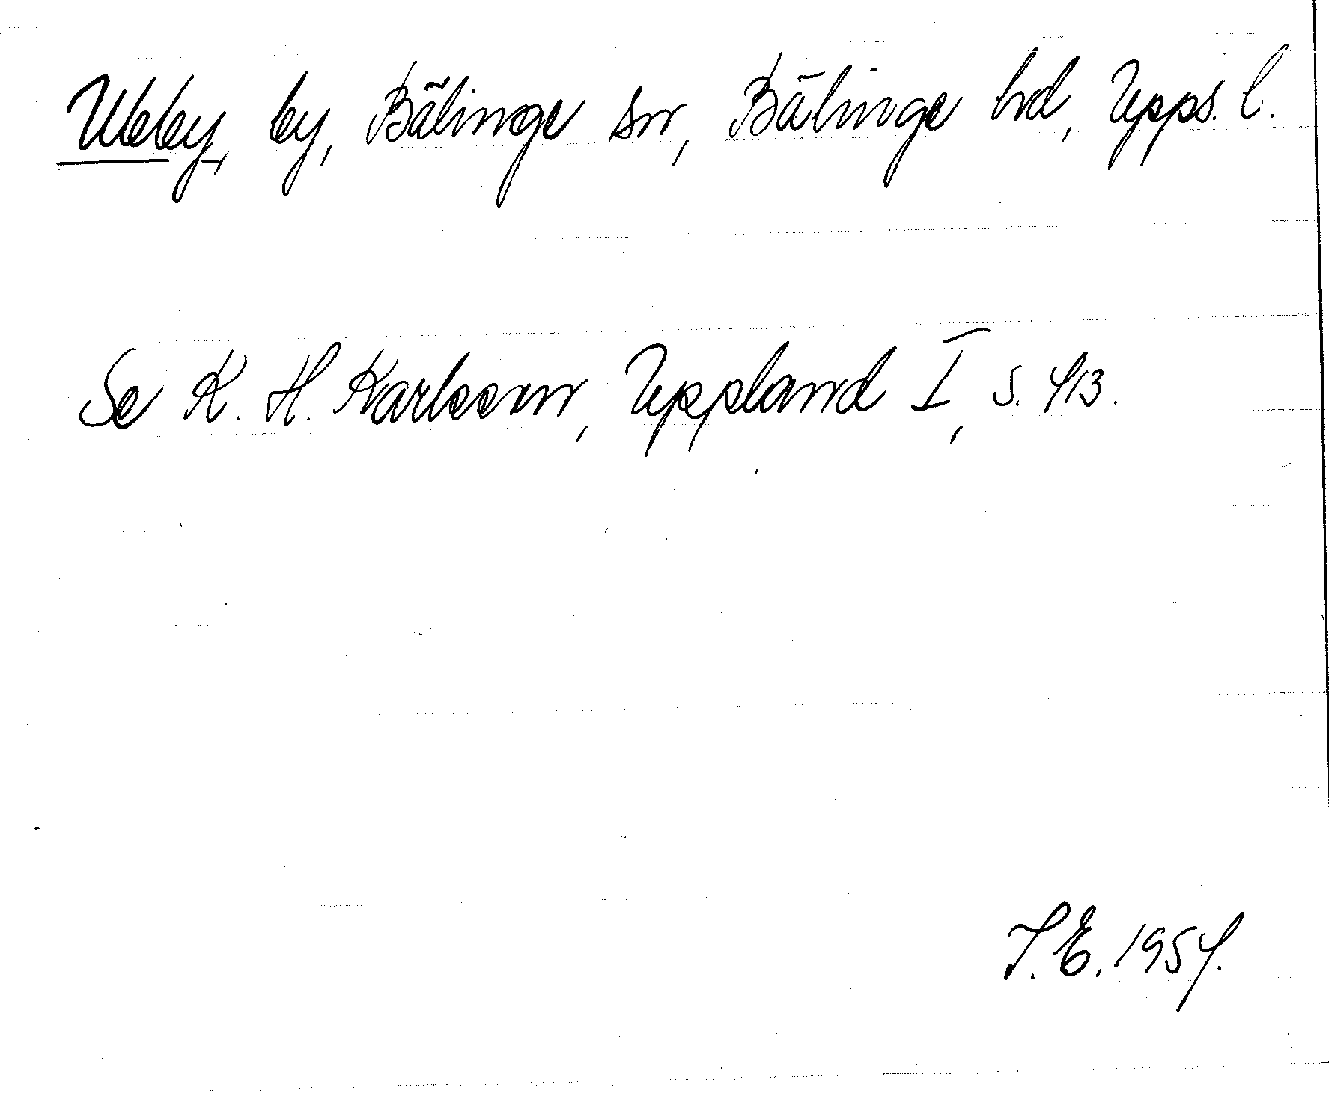 Ubby, by, Bälinge sn, Bälinge hd, Upps. l.
Se K. H. Karlsson, Uppland I, s. 413.
I. E. 1954.